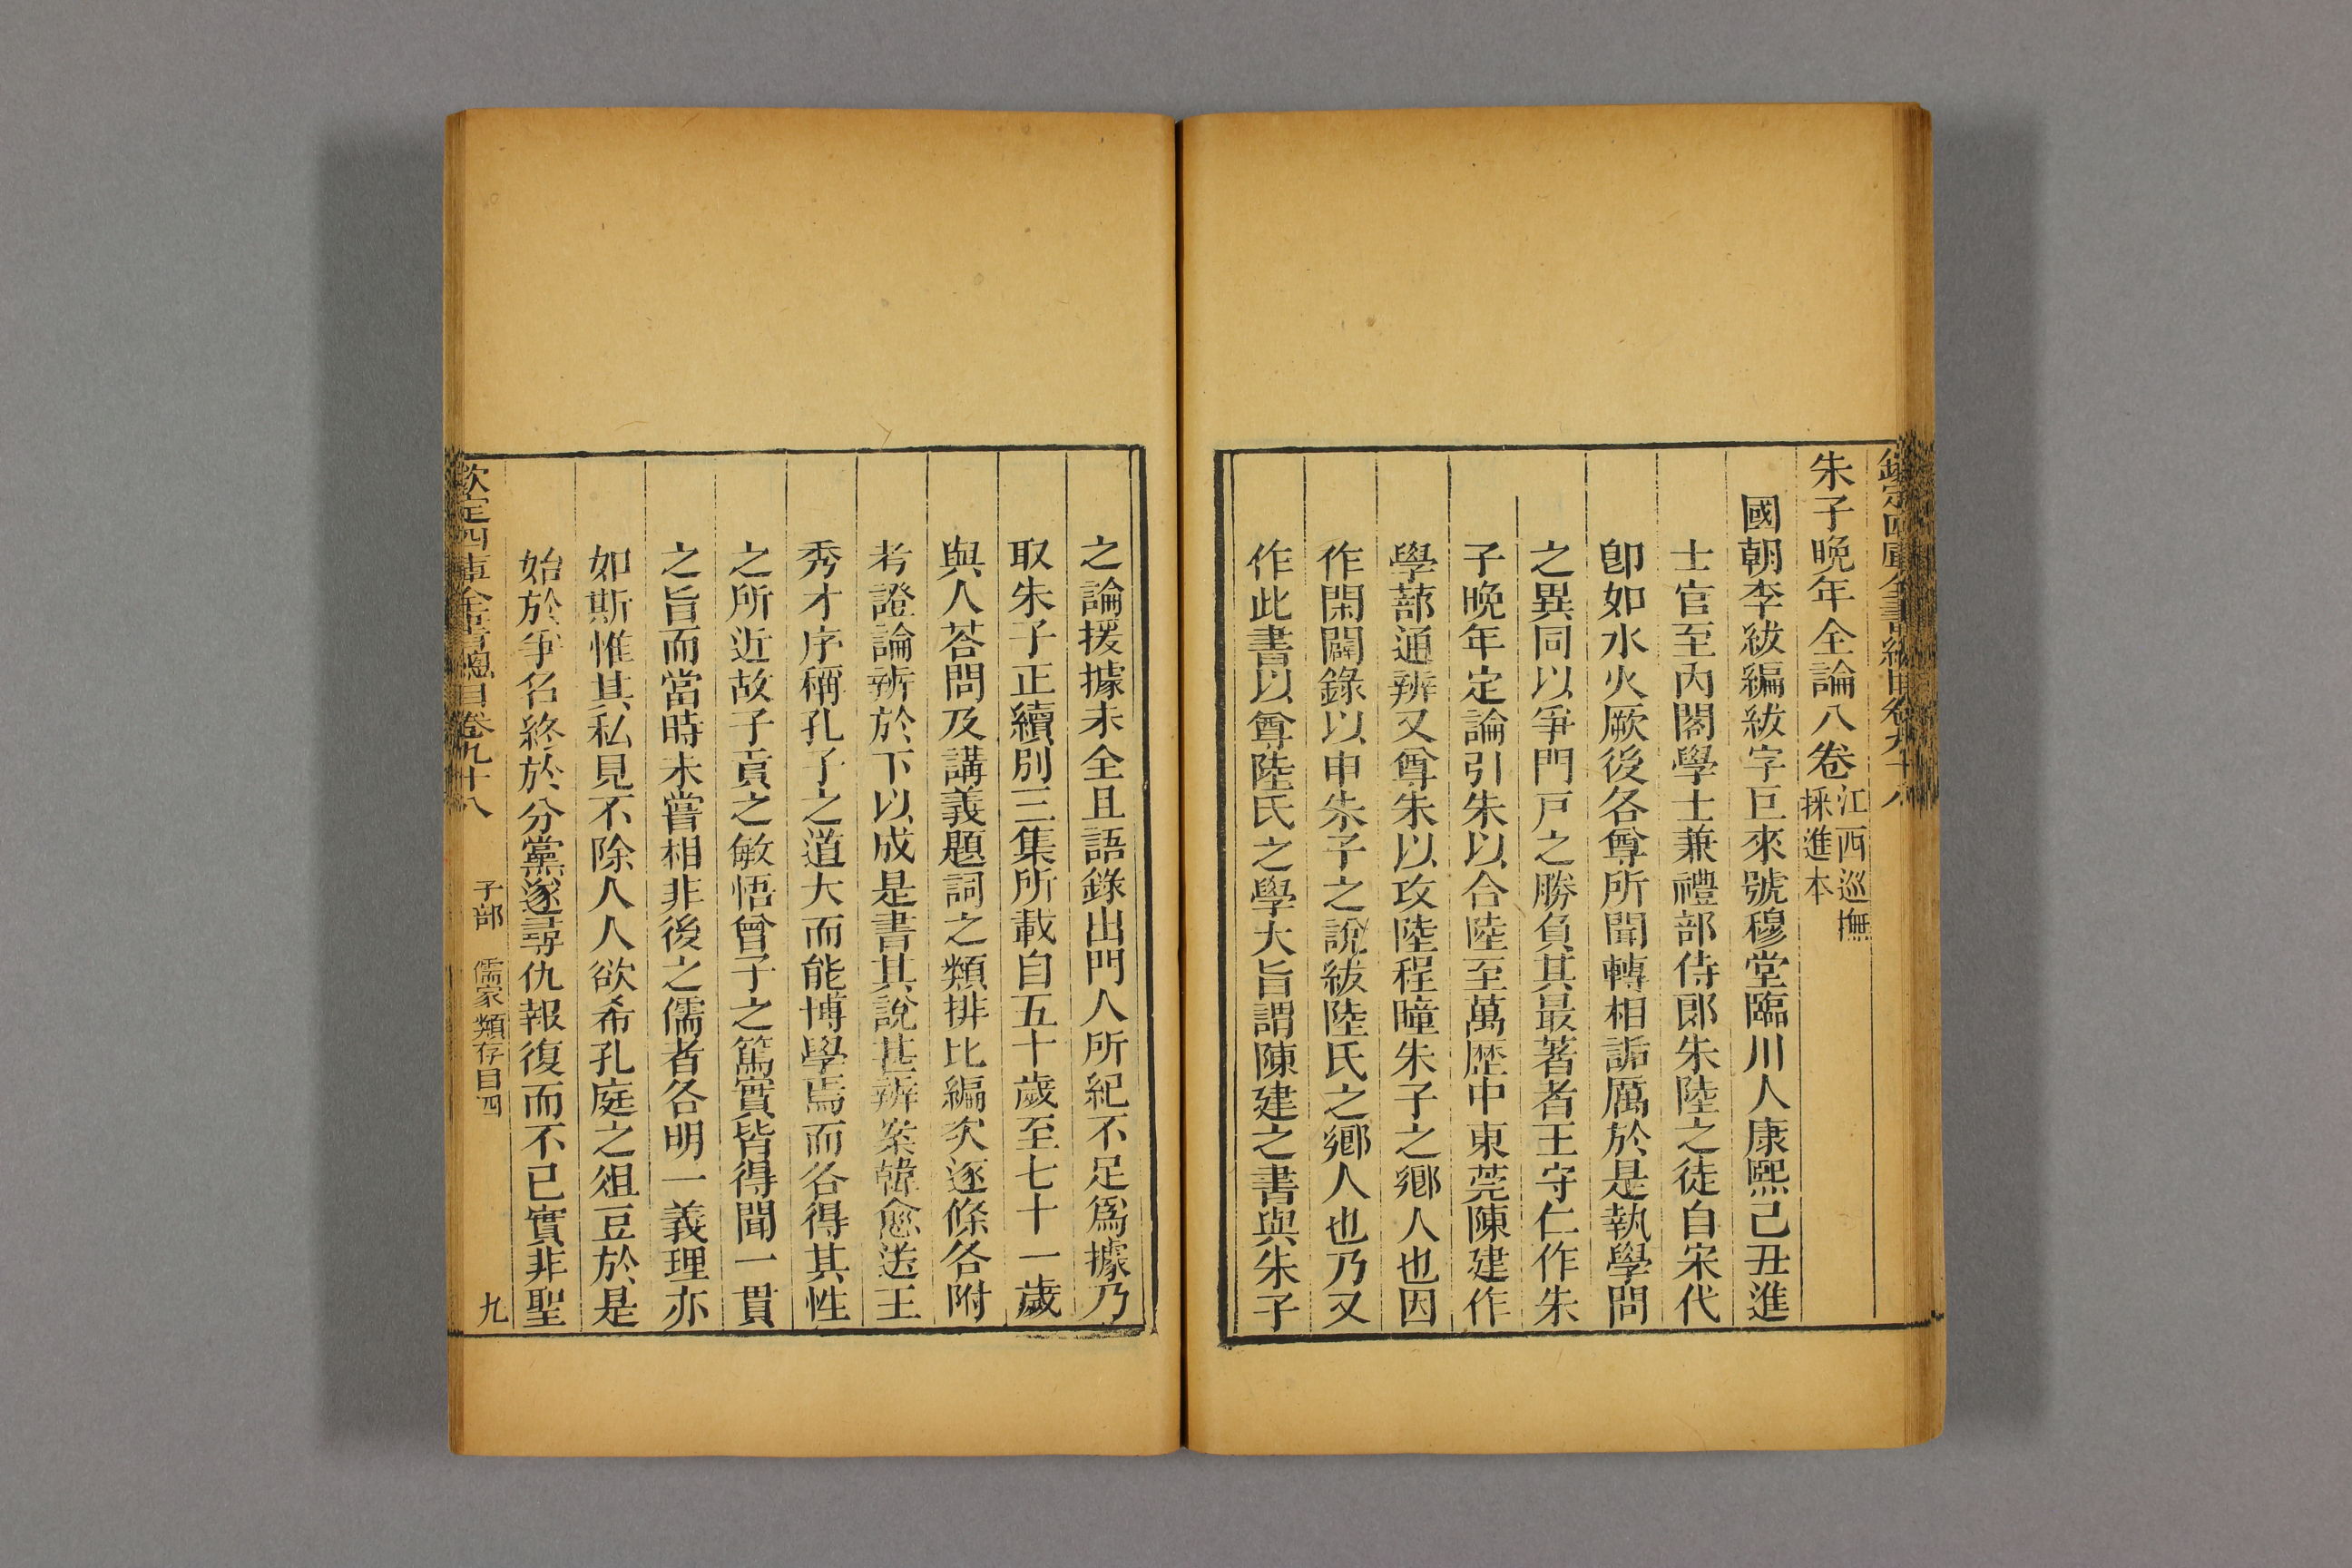 欽定四庫全書總目卷九十八
朱子晚年全論八卷
江西巡撫
採進本
國朝李紱編紱字巨來號穆堂臨川人康熙己丑進
士官至內閣學士兼禮部侍郎朱陸之徒自宋代
卽如水火厥後各尊所聞轉相詬厲於是執學問
之異同以爭門戸之勝負其最著者王守仁作朱
子晚年定論引朱以合陸至萬歴中東莞陳建作
學蔀通辨又尊朱以攻陸程瞳朱子之鄕人也因
作閑闢錄以申朱子之說紱陸氏之鄕人也乃又
作此書以尊陸氏之學大旨謂陳建之書與朱子
之論援據未全且語錄出門人所紀不足爲據乃
取朱子正續別三集所載自五十歲至七十一歲
與人荅問及講義題詞之類排比編次逐條各附
考證論辨於下以成是書其說甚辨案韓愈送王
秀才序稱孔子之道大而能博學焉而各得其性
之所近故子貢之敏悟曾子之篤實皆得聞一貫
之旨而當時未嘗相非後之儒者各明一義理亦
如斯惟其私見不除人人欲希孔庭之俎豆於是
始於爭名終於分黨遂尋仇報復而不已實非聖
欽定四庫全書總目卷九十八　子部　儒家類存目四　九